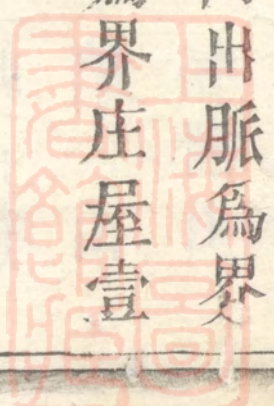 出脈爲界
界庄屋壹